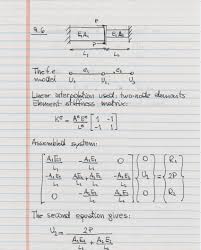 9.6
P
E₁A₁ E₂A₂
P
L₁ L₂
The f.e. model e₁ e₂
U₁ U₂ U₃
Linear interpolation used: two-node elements
Element stiffness matrix:
Kᵉ = AᵉEᵉ/Lᵉ [1 -1; -1 1]
Assembled system:
[A₁E₁/L₁ -A₁E₁/L₁ 0; -A₁E₁/L₁ A₁E₁/L₁ + A₂E₂/L₂ -A₂E₂/L₂; 0 -A₂E₂/L₂ A₂E₂/L₂] {0; U₂; 0} = {R₁; 2P; R₃}
The second equation gives:
U₂ = 2P / (A₁E₁/L₁ + A₂E₂/L₂)